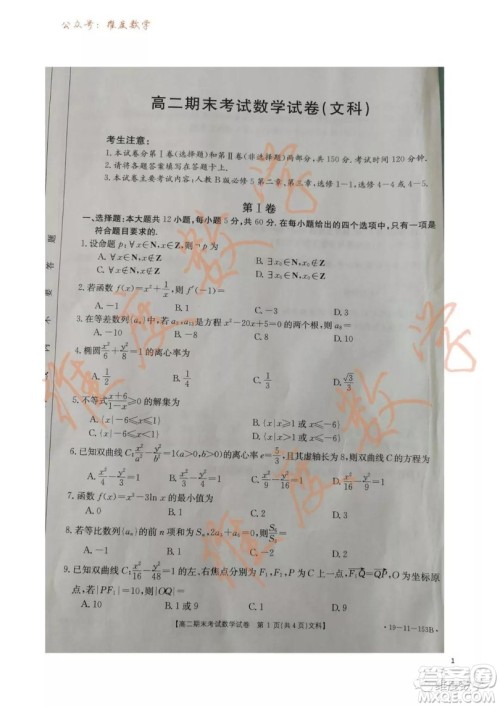 公众号：维度数学
高二期末考试数学试卷(文科)
考生注意:
1.本试卷分第Ⅰ卷(选择题)和第Ⅱ卷(非选择题)两部分,共150分,考试时间120分钟.
2.请将各题答案填写在答题卡上.
3.本试卷主要考试内容:人教B版必修5第二章,第三章,选修1-1,选修4-4,选修4-5.
第Ⅰ卷
一、选择题:本大题共12小题,每小题5分,共60分.在每小题给出的四个选项中,只有一项是
符合题目要求的.
1.设命题p:∀x∈N,x∈Z,则¬p为
A.∀x∉N,x∈Z B.∃x₀∈N,x₀∉Z
C.∀x∉N,x∉Z D.∃x₀∈N,x₀∈Z
2.若函数f(x)=x²+1/x,则f′(-1)=
A.-1 B.1 C.-3 D.3
3.在等差数列{aₙ}中,若
是方程x²-20x+5=0的两根,则a₈=
A.-10 B.-5 C.5 D.10
4.椭圆x²/6+y²/8=1的离心率为
5.不等式(x+6)/(1-x)≥0的解集为
A.{x|-6≤x≤1} B.{x|x≥1或x≤-6}
C.{x|-6≤x<1} D.{x|x>1或x≤-6}
6.已知双曲线C:x²/a²-y²/b²=1(a>0,b>0)的离心率e=5/3,且其虚轴长为8,则双曲线C的方程为
A.x²/4-y²/3=1 B.x²/9-y²/16=1 C.x²/3-y²/4=1 D.x²/16-y²/9=1
7.函数f(x)=x³-3ln x的最小值为
A.0 B.1 C.2 D.3
8.若等比数列{aₙ}的前n项和为Sₙ,
A.-1 B.1 C.-2 D.2
9.已知双曲线C:x²/16-y²/48=1的左、右焦点分别为F₁,F₂,P为C上一点,
O为坐标原
点,若|PF₁|=10,则|OQ|=
A.10 B.1或9 C.1 D.9
【高二期末考试数学试卷 第1页(共4页)文科】
·19-11-153B·
1
维度数学